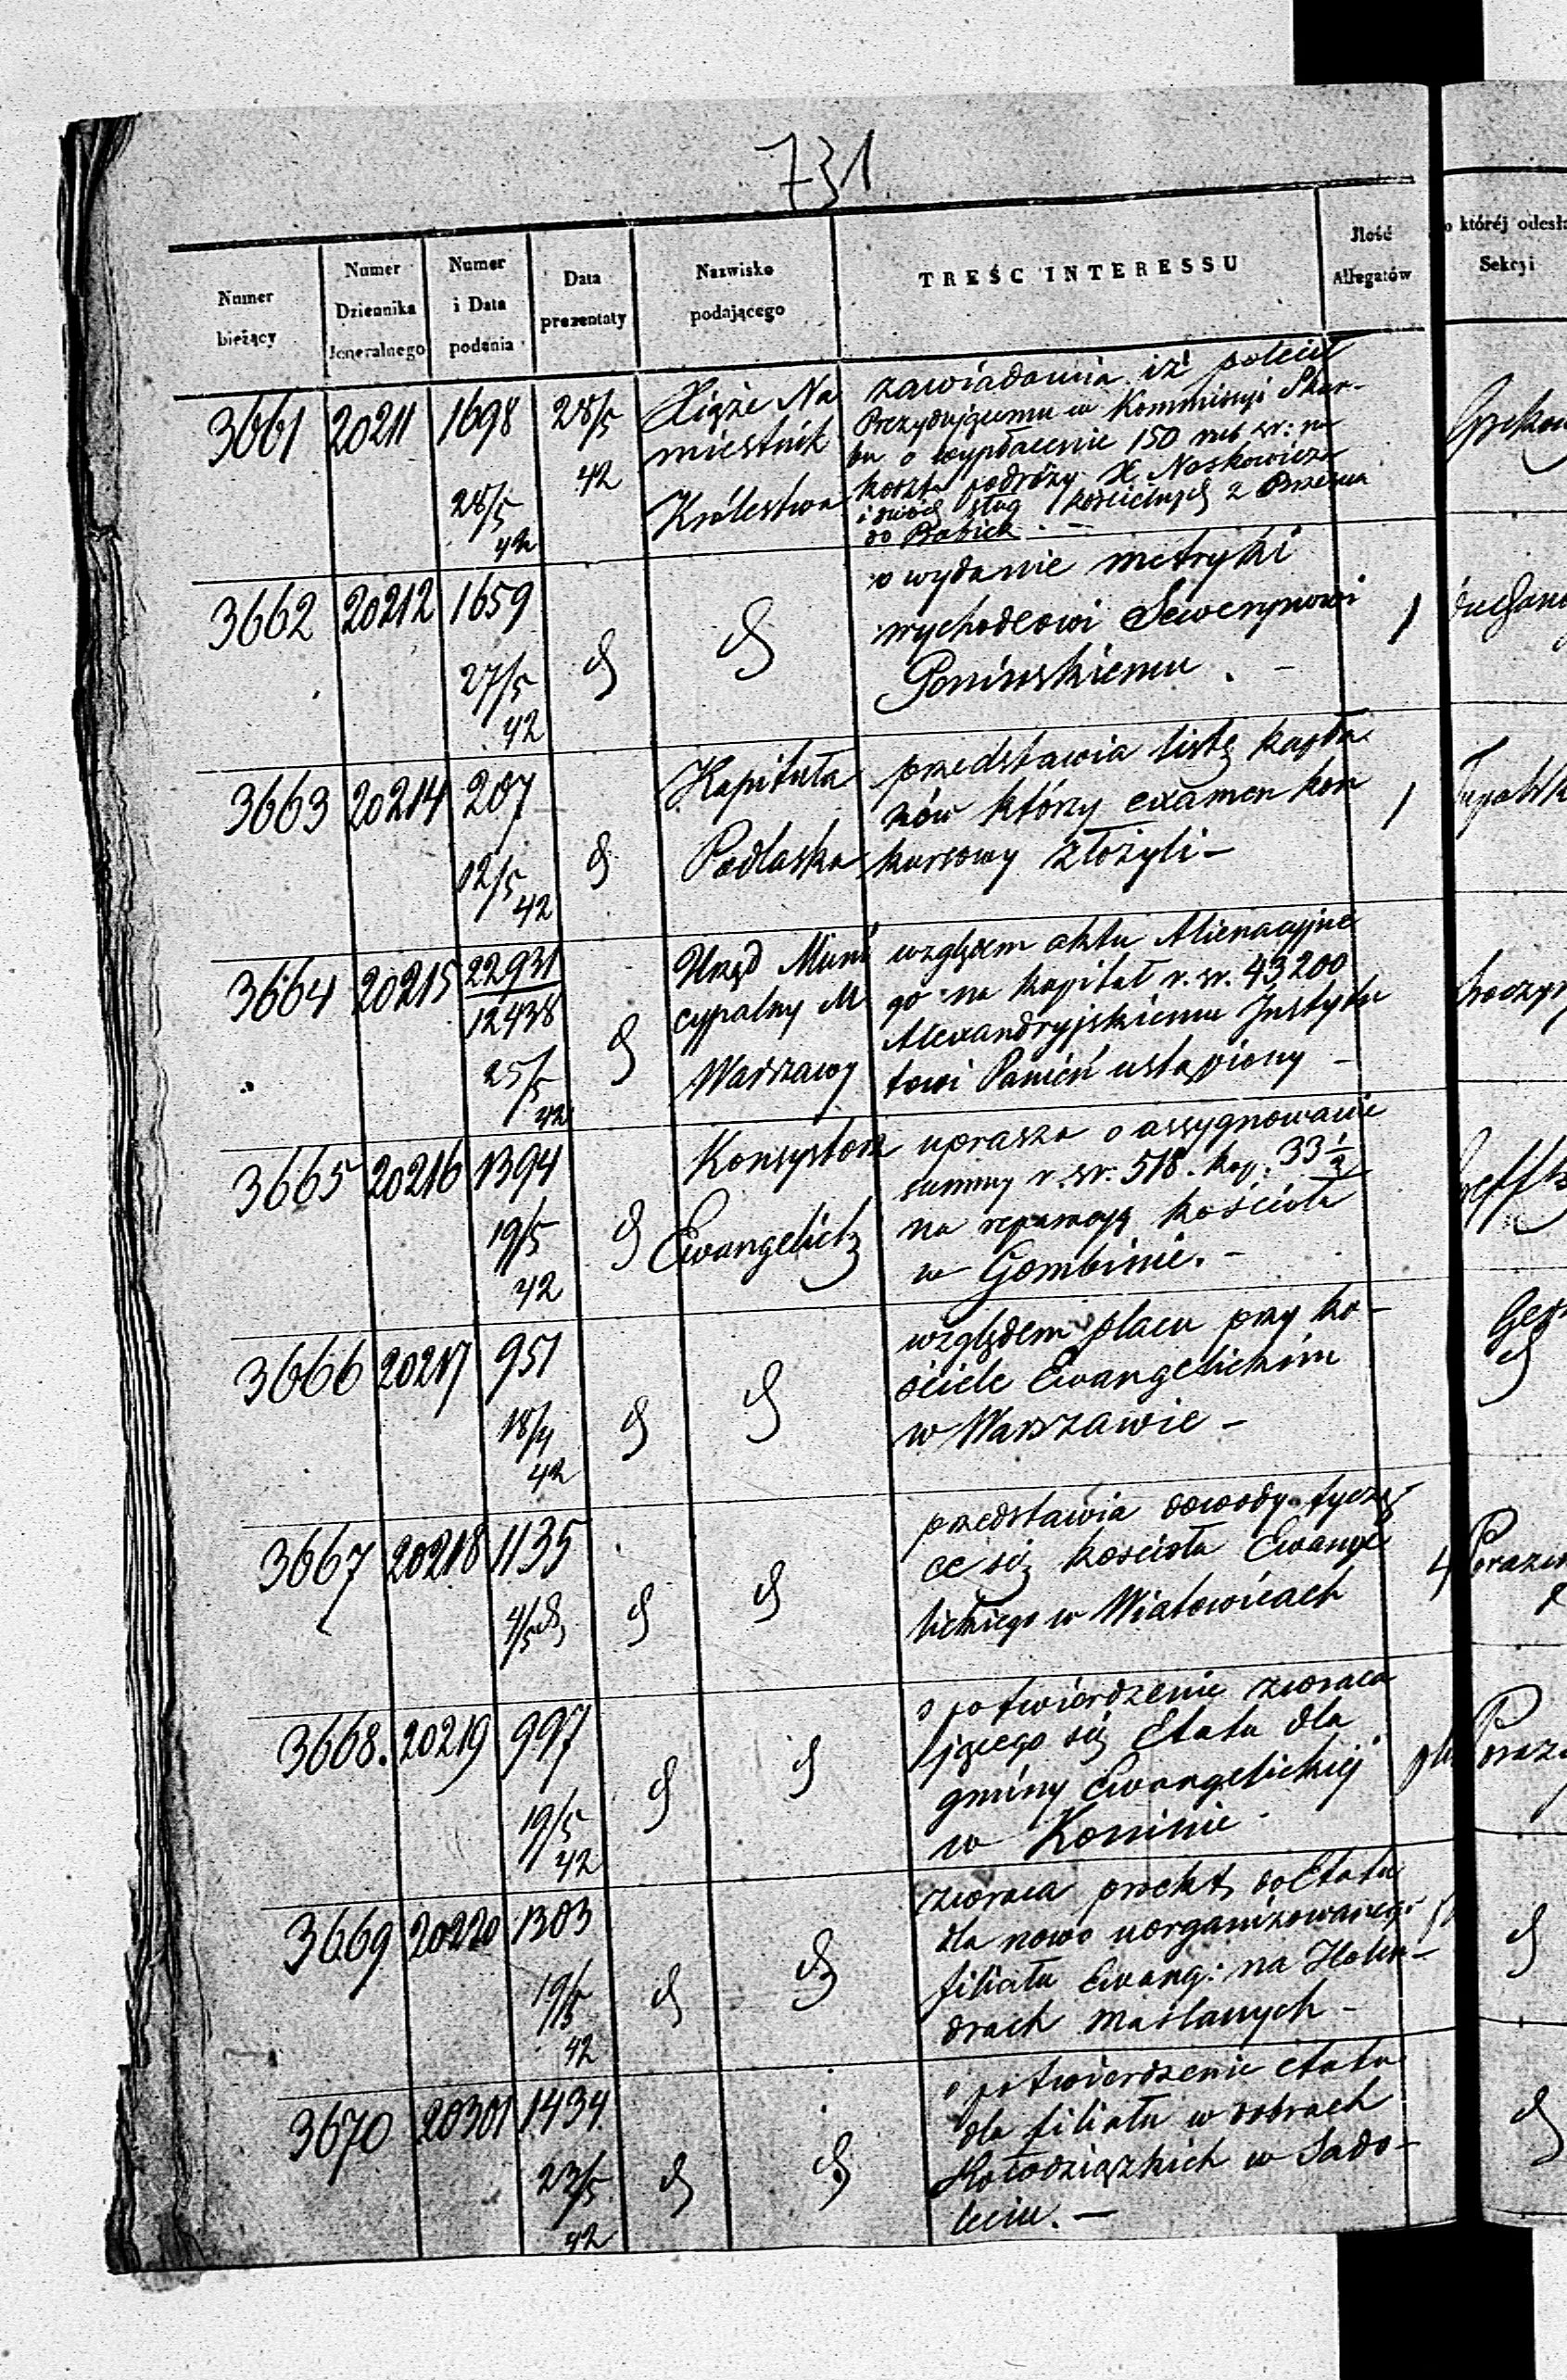 731
Numer bieżący
Numer Dziennika Jeneralnego
Numer i Data podania
Data prezentaty
Nazwisko podającego
TREŚĆ INTERESSU
Ilość Allegatów
o któréj odesła
Sekcyi
3661 20211 1698 28/5 42 28/5 42
Xiąże Na
miestnik
Królestwa
zawiadamia iż polecił
Prezydującemu w Kommissyi Skar-
bu o wypłacenie 150 rub sr: na
koszta podróży X. Noskowicza
i dwóch sług kościelnych z
do
3662 20212 1659 27/5 42 d d
o wydanie metryki
wychodcowi Sewerynowi
Ponińskiemu. -
1
3663 20214 207 12/5 42 d
Kapituła
Podlaska
przedstawia listę kapła
nów którzy examen kon
kursowy złożyli -
1
3664 20215 22931
12438
25/5 42 d
Urząd Muni
cypalny M
Warszawy
względem aktu Alienacyjne
go na kapitał r. sr. 43200
Alexandryjskiemu Instytu
towi Panień ustąpiony -
3665 20216 1394 19/5 42 d
Konsystorz
Ewangelick
uprasza o assygnowanie
summy r. sr. 518. kop. 33 1/2
na reparacyą kościoła
w Gombinie. -
3666 20217 951 18/4 42 d d
względem placu przy ko-
ściele Ewangelickim
w Warszawie -
d
3667 20218 1135 4/5 d d d
przedstawia dowody tyczą
ce się kościoła Ewange
lickiego w Wiatowicach
4
3668. 20219 997 19/5 42 d d
o potwierdzenie zwraca
jącego się Etatu dla
gminy Ewangelickiéj
w Koninie -
3669 20220 1303 19/5 42 d d
zwraca projekt do Etatu
dla nowo uorganizowanego
filiału Ewang: na Holen-
drach maślanych -
d
3670 20301 1434 23/5 42 d d
o potwierdzenie etatu
dla filiału w dobrach
Kołodziązkich w Sado-
leciu. -
d